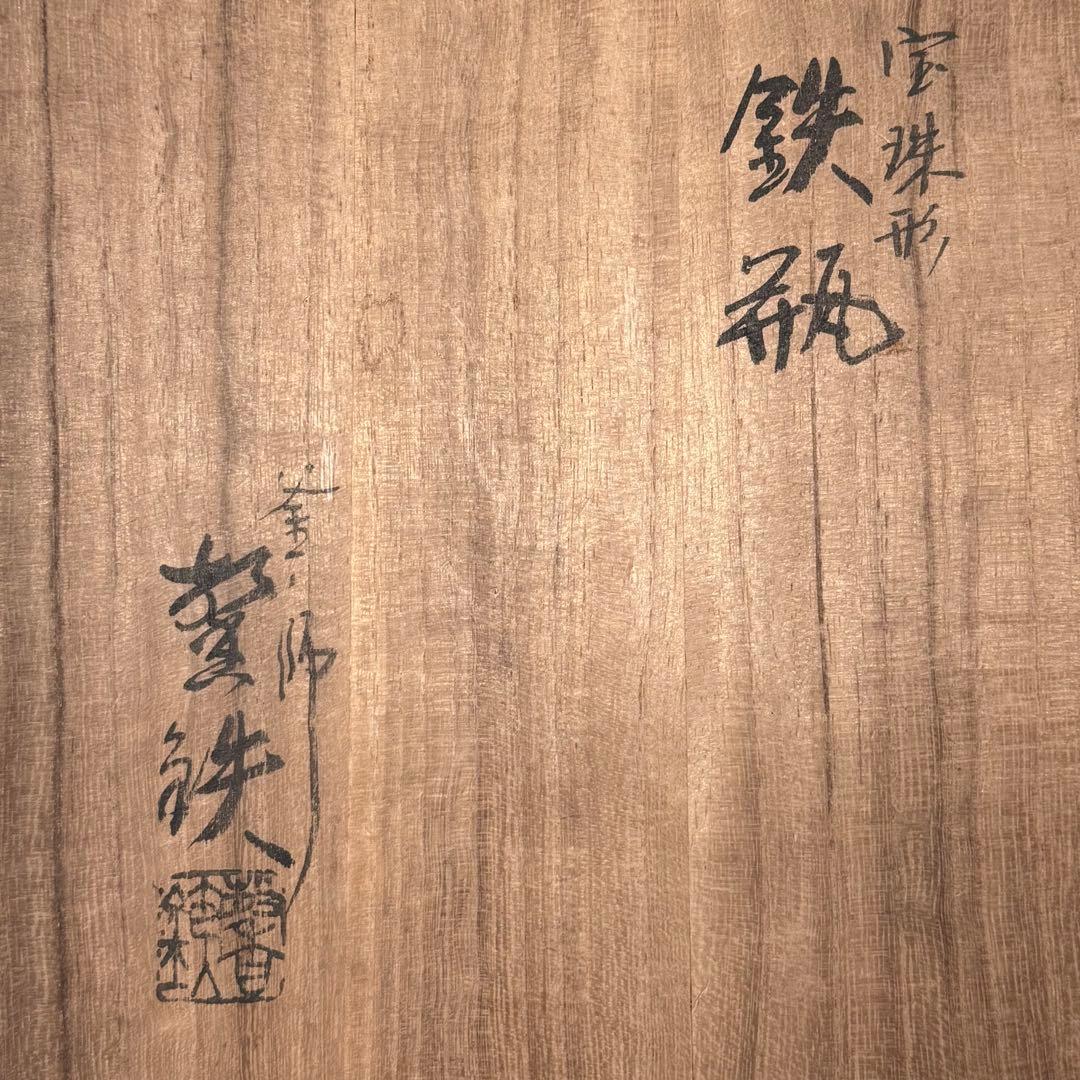 宝珠形
鉄瓶
釜師
鉄